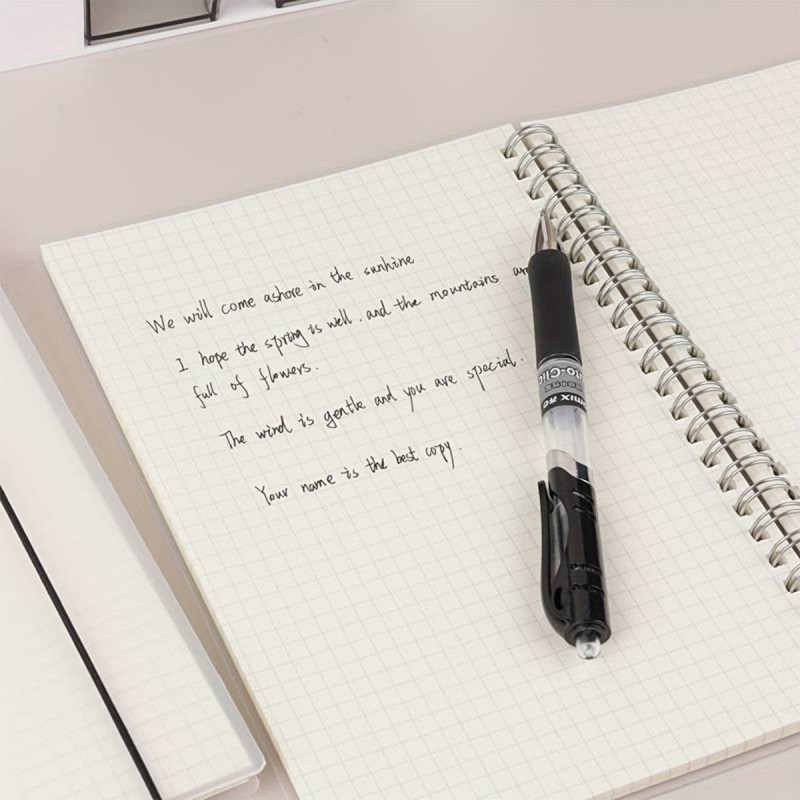 We will come ashore in the sunhine
I hope the spring is well, and the mountains
full of flowers.
The wind is gentle and you are special.
Your name is the best copy.